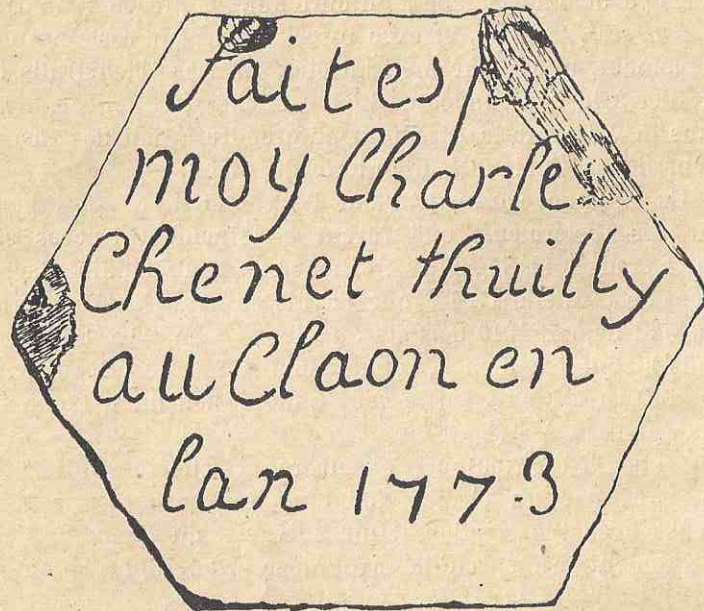 faites
moy Charle
Chenet thuilly
au Claon en
lan 1773